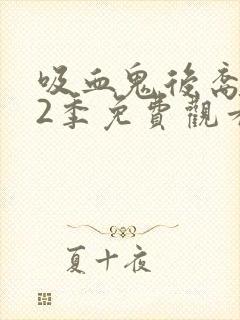 吸血鬼後裔
2季免費觀看
夏十夜